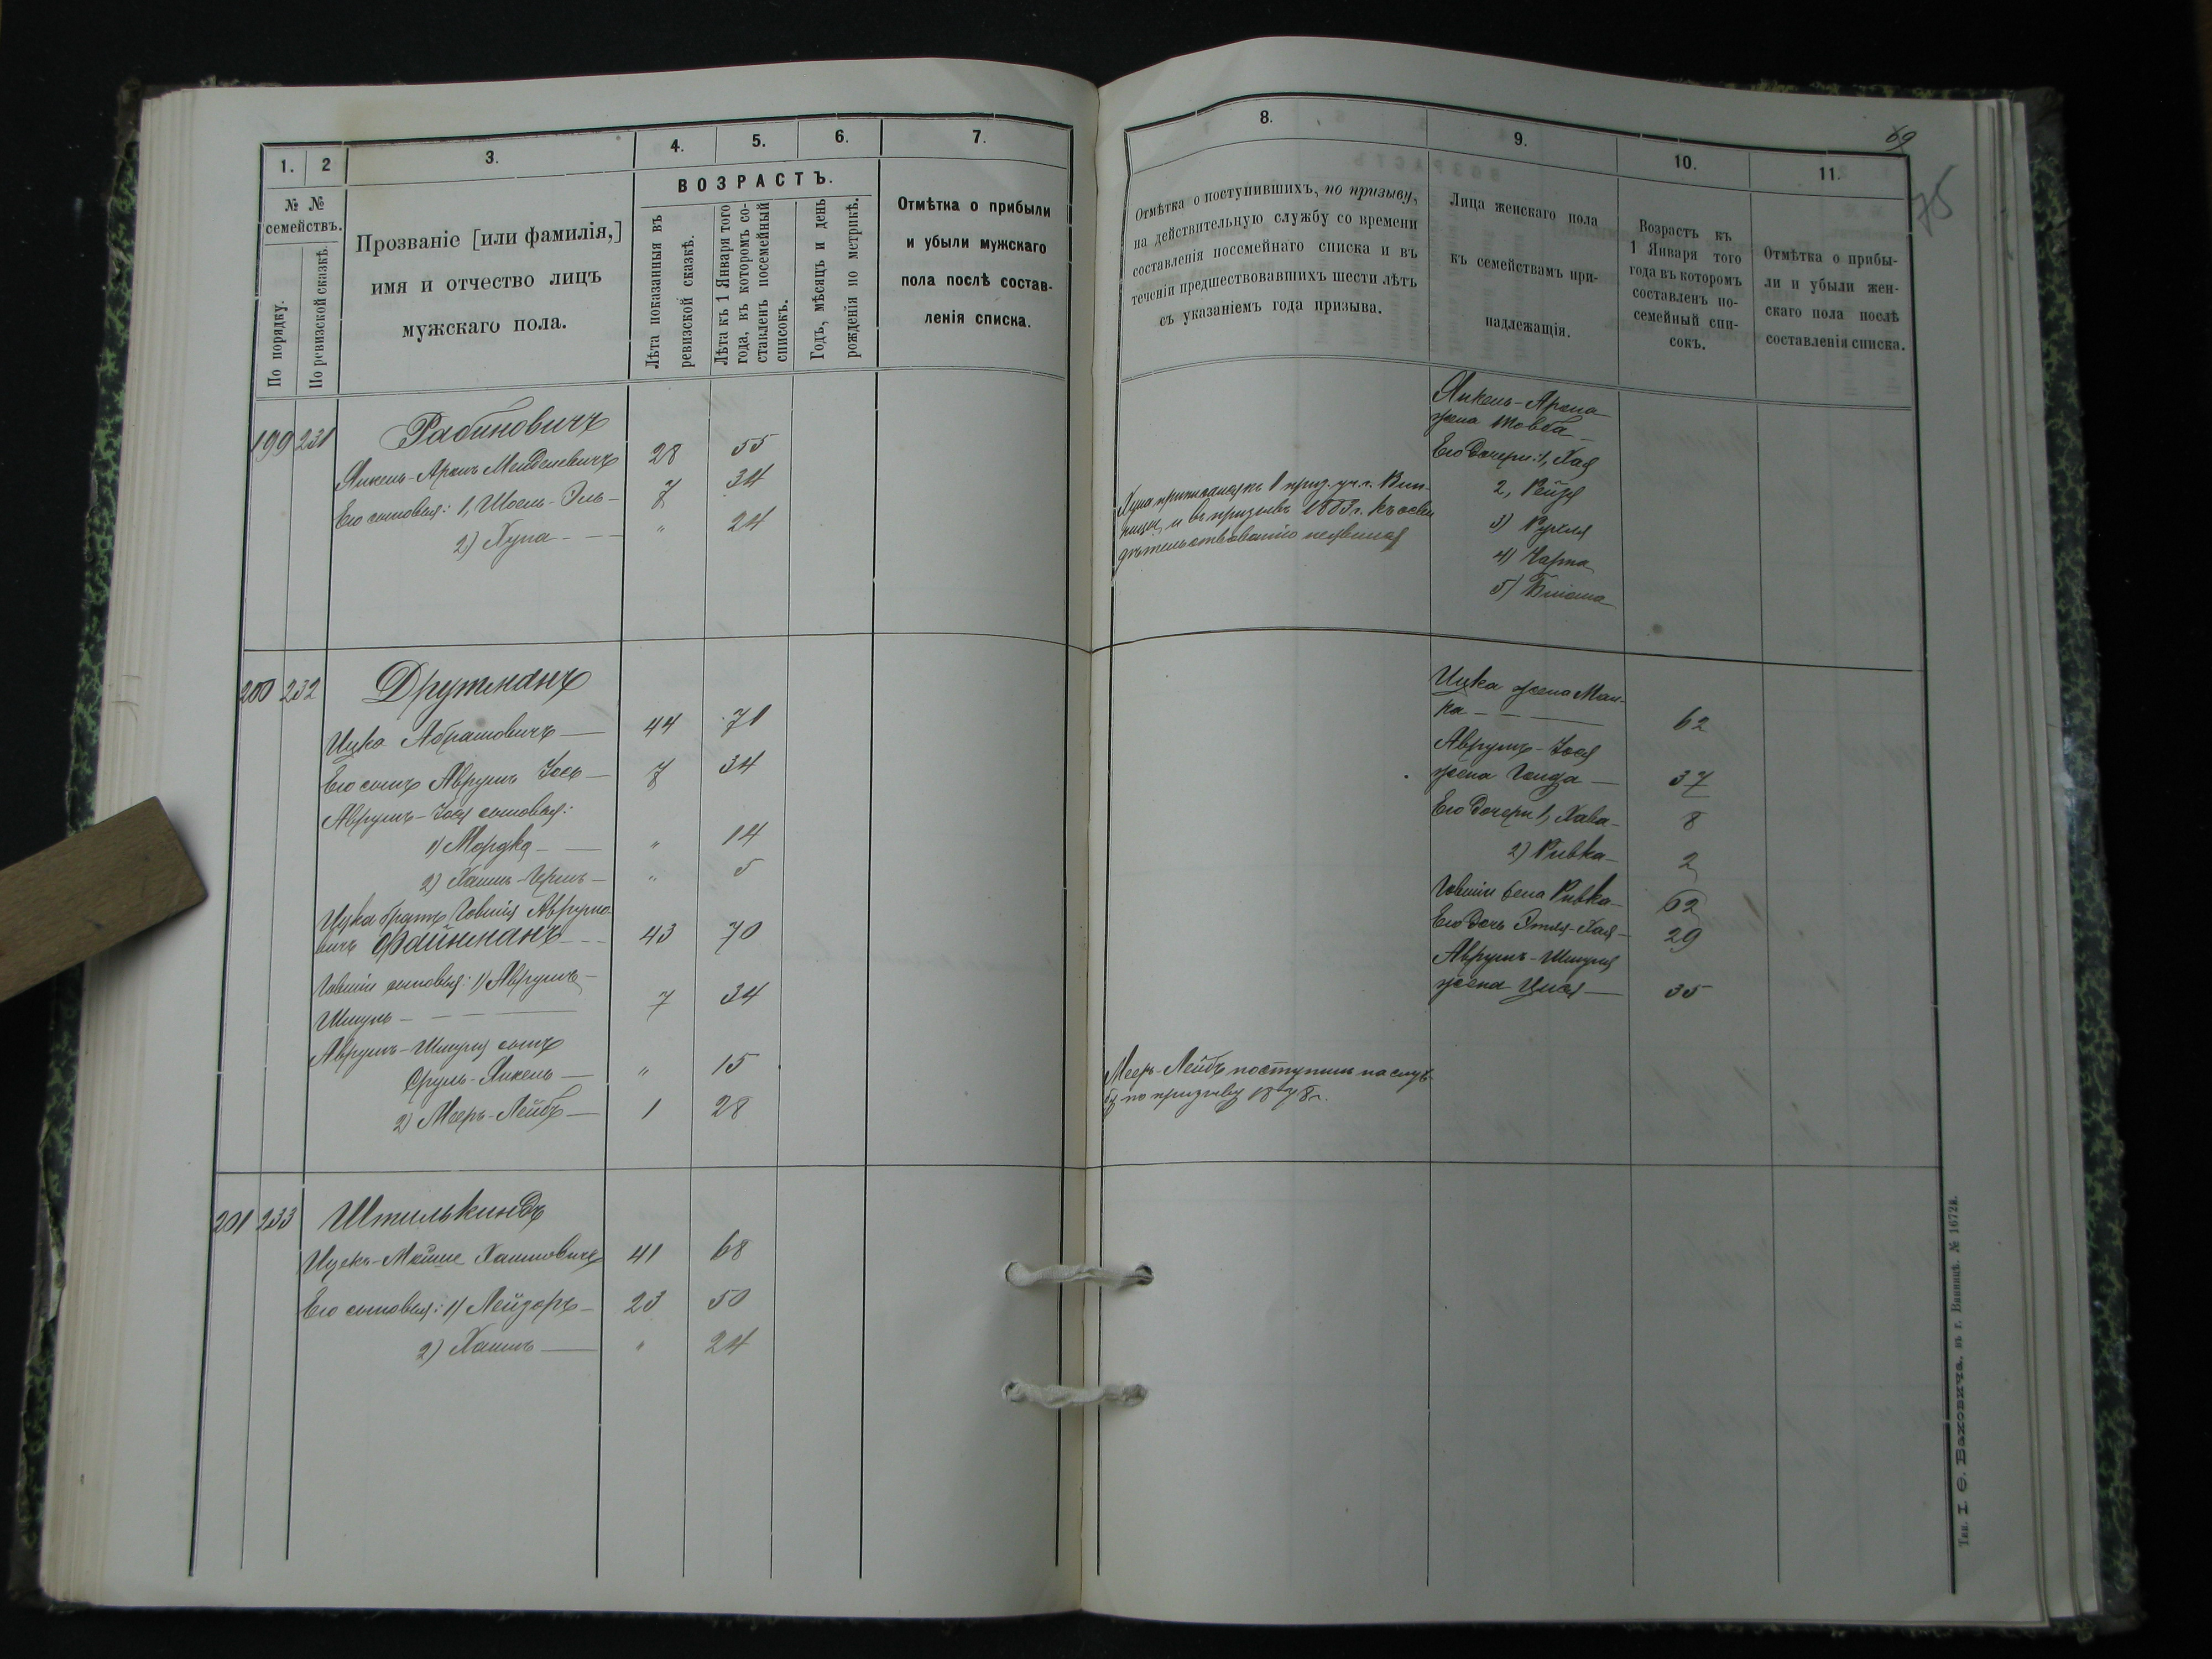 1. 2 3. 4. 5. 6. 7.
№ № семействъ.
По порядку.
По ревизской сказкѣ.
Прозваніе [или фамилія,]
имя и отчество лицъ
мужскаго пола.
ВОЗРАСТЪ.
Лѣта показанныя въ
ревизской сказкѣ.
Лѣта къ 1 Января того
года, въ которомъ со-
ставленъ посемейный
списокъ.
Годъ, мѣсяцъ и день
рожденія по метрикѣ.
Отмѣтка о прибыли
и убыли мужскаго
пола послѣ состав-
ленія списка.
199 231 Рабиновичъ
Янкель-Аронъ Менделевичъ 28 55
Его сыновья: 1, Шоель-Эль- 7 34
2) Хуна - - - " 24
200 232 Друтманъ
Ицко Абрамовичъ — 44 71
Его сынъ Аврумъ Іось — 7 34
Аврумъ-Іося сыновья:
1) Мордко - — " 14
2) Хаимъ-Гершъ — " 5
Ицка братъ Говшія Аврумо-
вичъ Файнманъ - - - 43 70
Говшіи сыновья: 1) Аврумъ-
Шмуль - - - — 7 34
Аврумъ-Шмуля сынъ
Сруль-Янкель — " 15
2) Мееръ-Лейбъ — 1 28
201 233 Штилькиндъ
Ицекъ-Мойше Хаимовичъ 41 68
Его сыновья: 1) Лейзоръ — 23 50
2) Хаимъ — " 24
69
75
8. 9. 10. 11.
Отмѣтка о поступившихъ, по призыву,
на дѣйствительную службу со времени
составленія посемейнаго списка и въ
теченіи предшествовавшихъ шести лѣтъ
съ указаніемъ года призыва.
Лица женскаго пола
къ семействамъ при-
надлежащія.
Возрастъ къ
1 Января того
года въ которомъ
составленъ по-
семейный спи-
сокъ.
Отмѣтка о прибы-
ли и убыли жен-
скаго пола послѣ
составленія списка.
Хуна приписанъ къ 1 приз. уч. г. Вин-
ницы, и въ призывъ 1883 г. къ осви
дѣтельствованію неявился
Янкель-Арона
жена Товба —
Его дочери: 1, Хая
2, Рейзя
3) Рухля
4) Чарна
5) Блюма
Ицка жена Мал-
ка - - — 62
Аврумъ-Іося
жена Гольда — 37
Его дочери 1, Хава — 8
2) Ривка — 2
Говшіи жена Ривка — 62
Его дочь Этля-Хая — 29
Аврумъ-Шмуля
жена Цися — 35
Мееръ-Лейбъ поступилъ на служ-
бу по призыву 1878 г.
Тип. І. Ѳ. Баховича. въ г. Винницѣ. № 1672й.